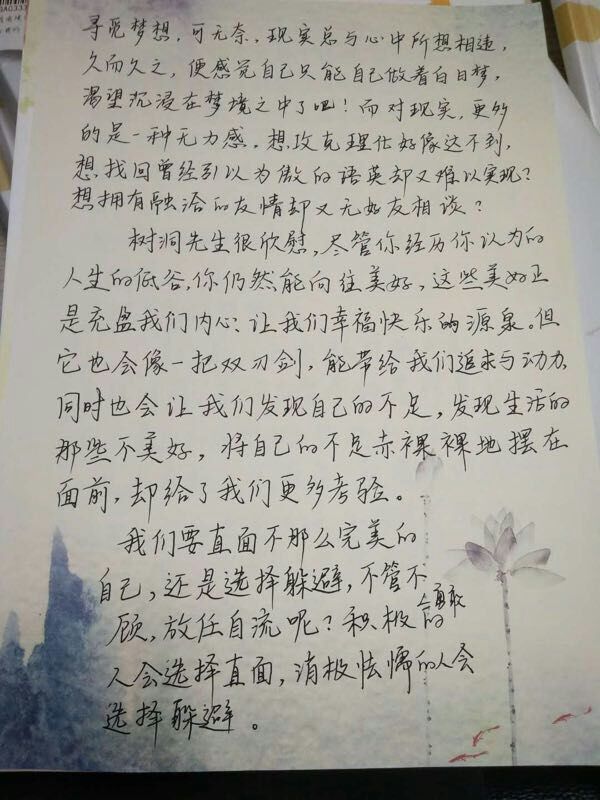 寻觅梦想，可无奈，现实总与心中所想相违，
久而久之，便感觉自己只能自己做着白日梦，
渴望沉浸在梦境之中了吧！而对现实，更多
的是一种无力感，想攻克理化好像达不到，
想找回曾经引以为傲的语英却又难以实现？
想拥有融洽的友情却又无好友相谈？
树洞先生很欣慰，尽管你经历你认为的
人生的低谷，你仍然能向往美好，这些美好正
是充盈我们内心；让我们幸福快乐的源泉。但
它也会像一把双刃剑，能带给我们追求与动力，
同时也会让我们发现自己的不足，发现生活的
那些不美好，将自己的不足赤裸裸地摆在
面前，却给了我们更多考验。
我们要直面不那么完美的
自己，还是选择躲避，不管不
顾，放任自流呢？积极勇敢的
人会选择直面，消极怯懦的人会
选择躲避。